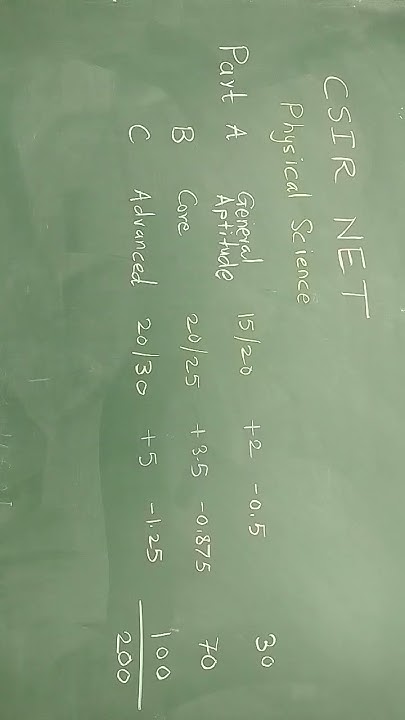 CSIR NET
Physical Science
Part A General Aptitude 15/20 +2 -0.5 30
B Core 20/25 +3.5 -0.875 70
C Advanced 20/30 +5 -1.25 100
200